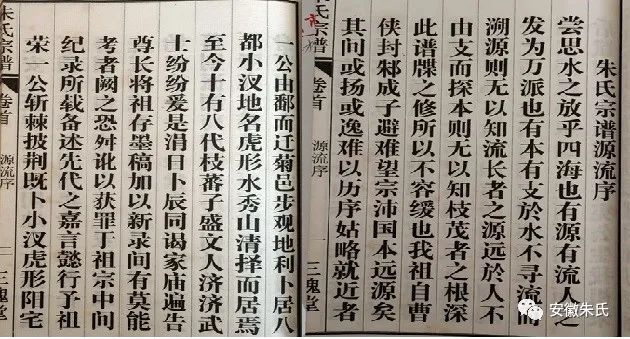 朱氏宗谱源流序
尝思水之放乎四海也有源有流人之
发为万派也有本有支於水不寻流而
溯源则无以知流长者之源远於人不
由支而探本则无以知枝茂者之根深
此谱牒之修所以不容缓也我祖自曹
侠封邾成子避难望宗沛国本远源矣
其间或扬或逸难以历序姑略就近者
氏宗谱 卷首 源流序 一 三槐堂
一公由鄱而迁菊邑步观地利卜居八
都小汊地名虎形水秀山清择而居焉
至今十有八代枝蕃子盛文人济济武
士纷纷爰是涓日卜辰同谒家庙遍告
尊长将祖存墨稿加以新录间有莫能
考者阙之恐舛讹以获罪丁祖宗中间
纪录所载备述先代之嘉言懿行予祖
荣一公斩棘披荆既卜小汊虎形阳宅
朱氏宗谱 卷首 源流序 三槐堂
安徽朱氏